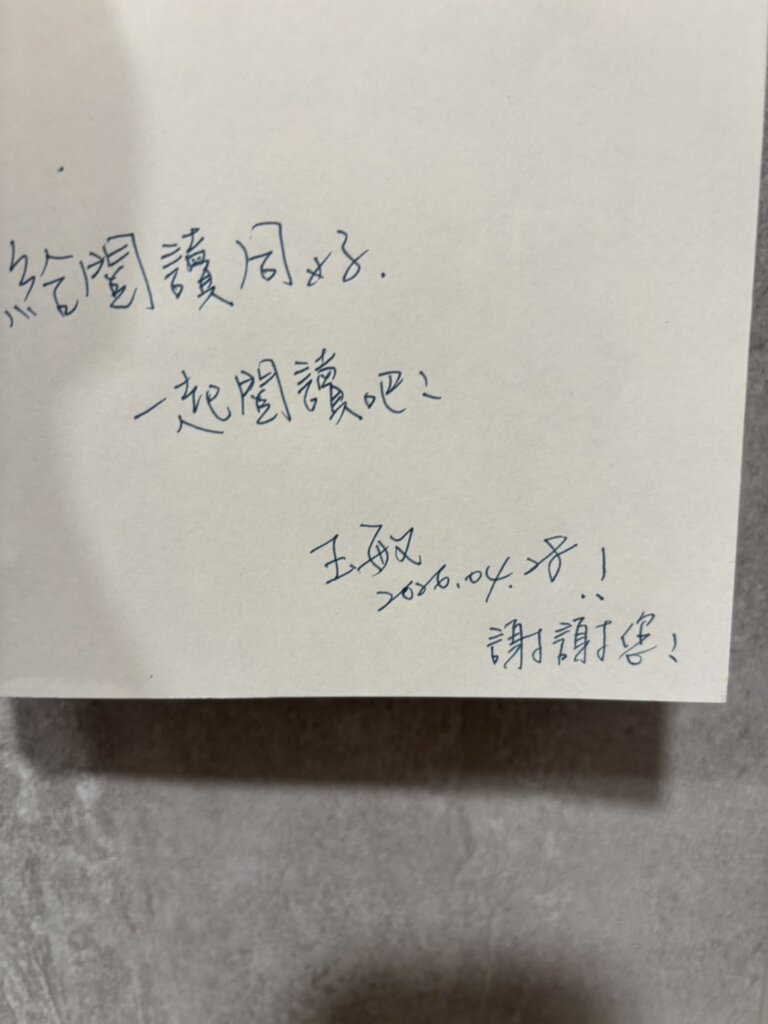 給閱讀同好.
一起閱讀吧!
玉敏
2026.04.28!
謝謝您!